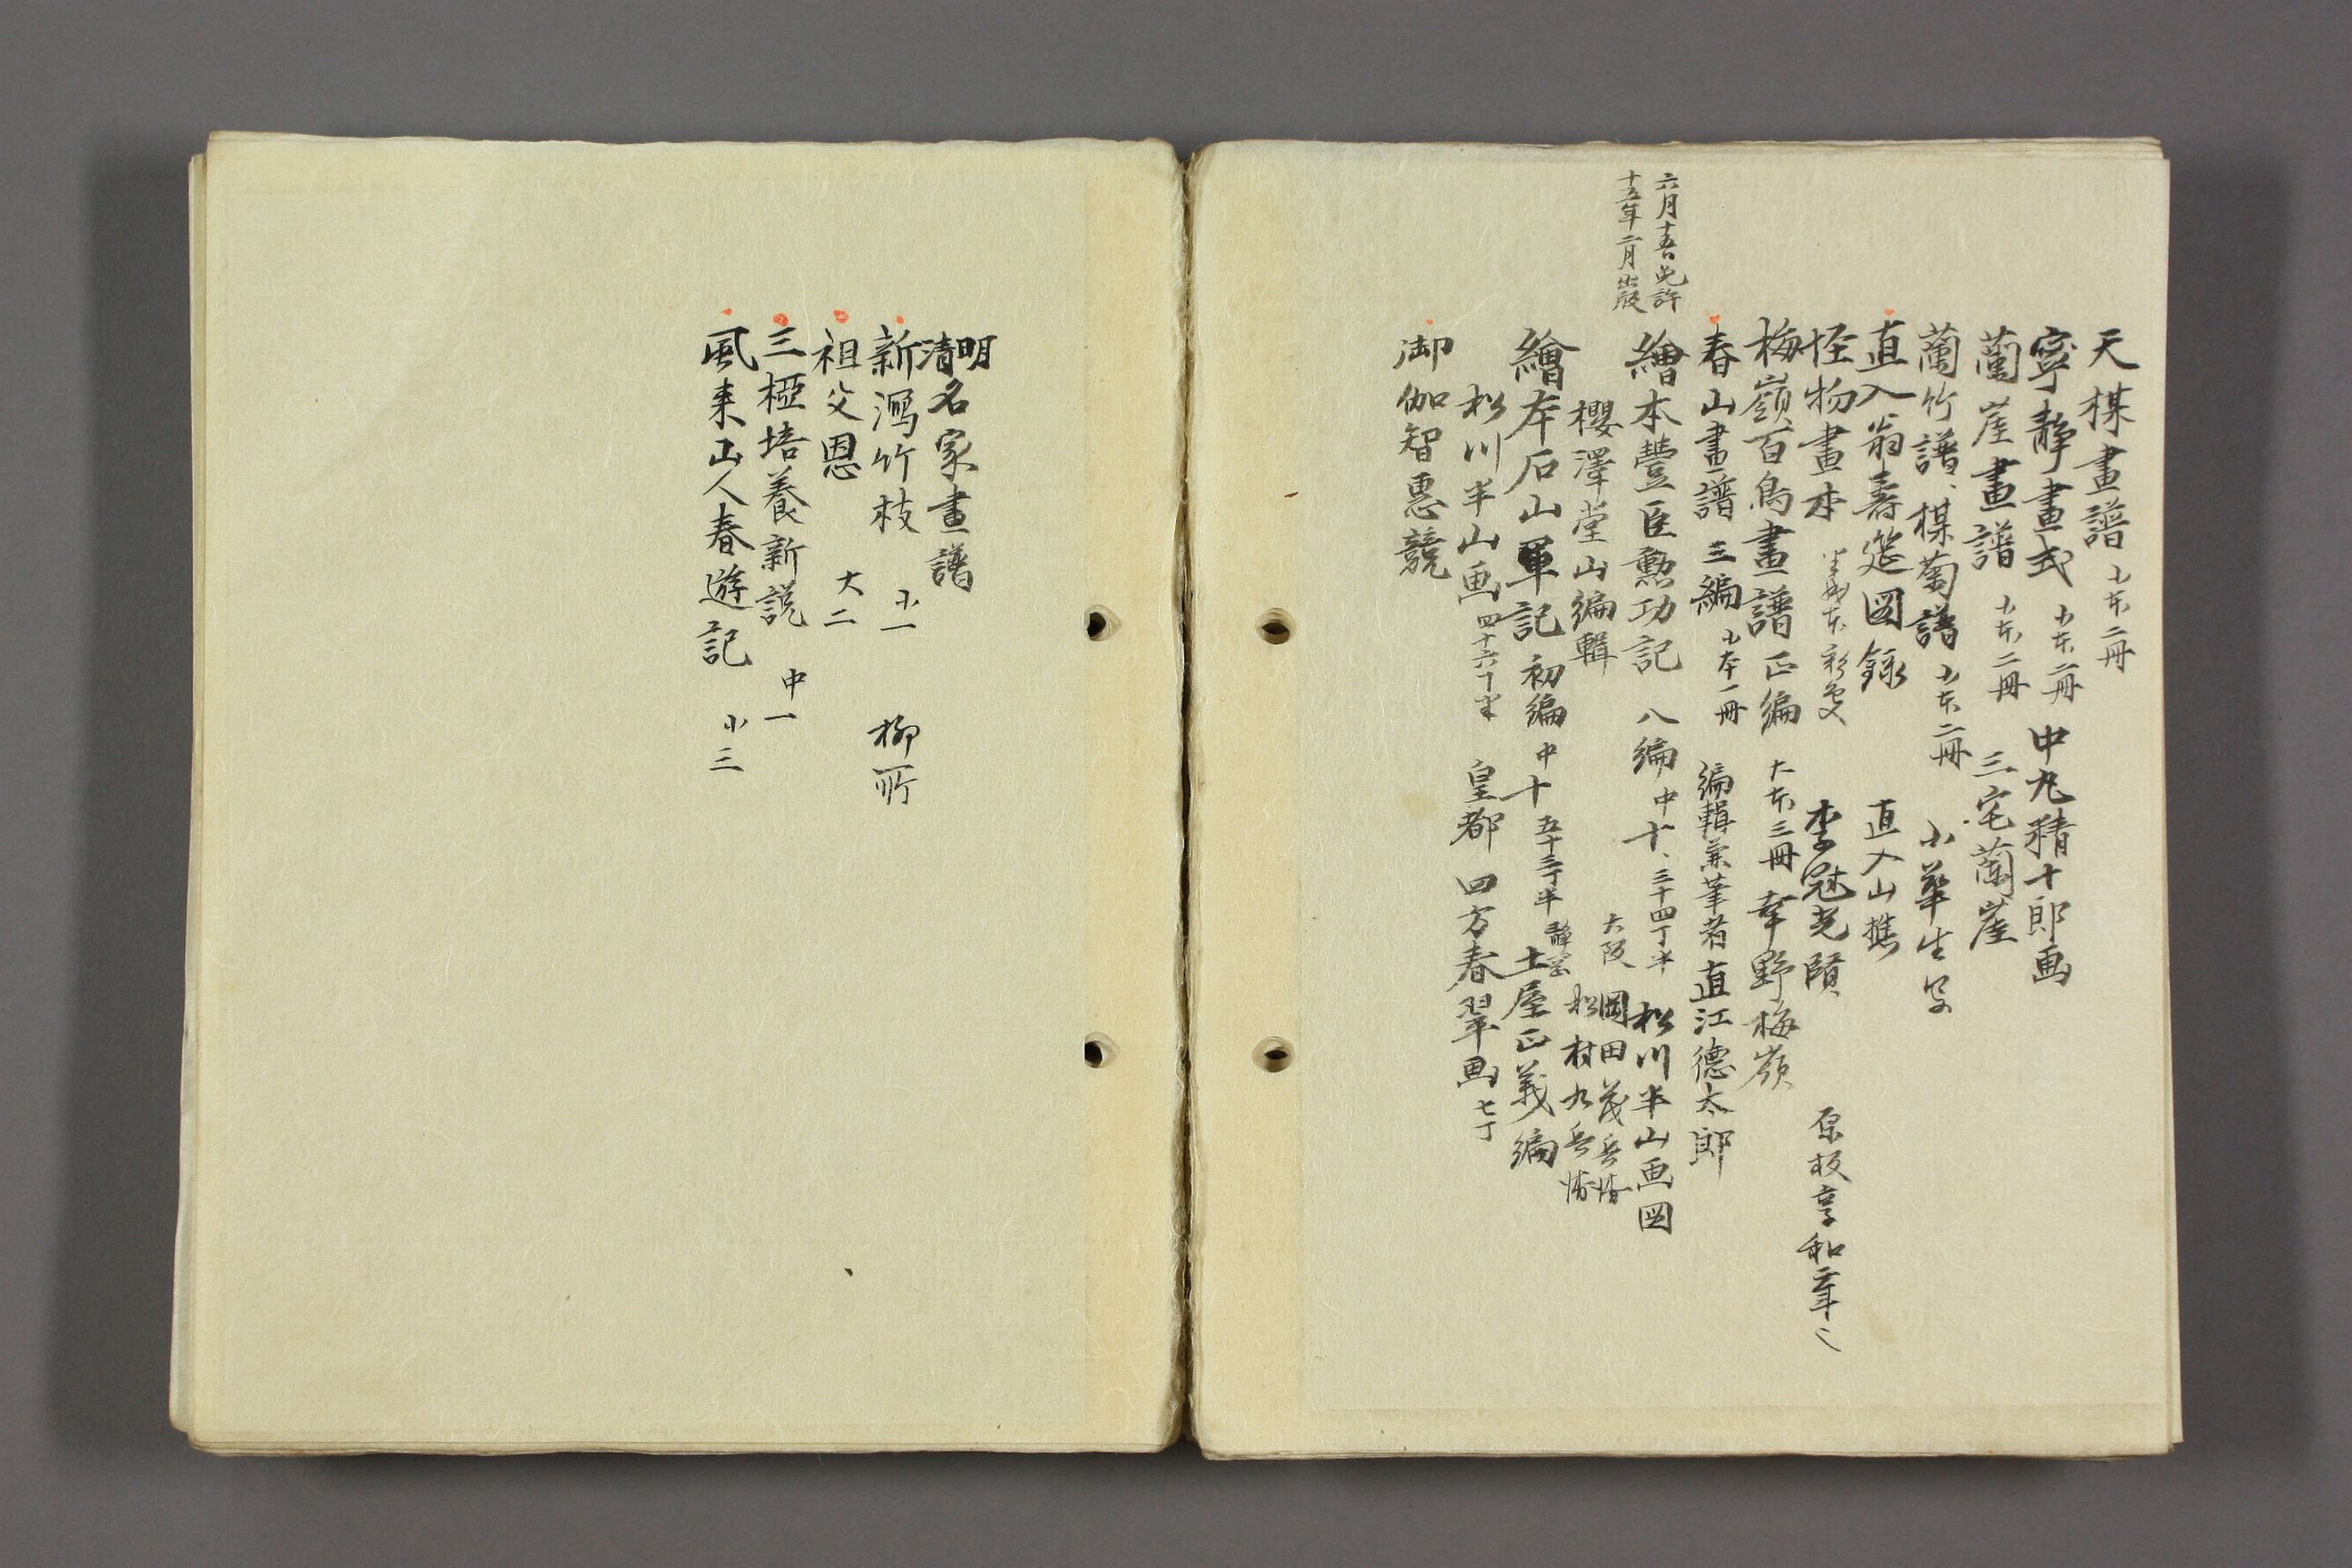 天楳畫譜 小本二冊
寧静畫式 小本二冊 中丸精十郎画
蘭崖畫譜 小本二冊 三宅蘭崖
蘭竹譜、楳菊譜 小本二冊 小華生写
直入翁壽筵図録 直入山樵
怪物畫本 半紙本 彩色 李冠光賢 原板享和
梅嶺百鳥畫譜 正編 大本三冊 幸野梅嶺
春山畫譜 三編 小本一冊 編輯兼筆者 直江德太郎
六月十五日免許
十五年二月出版
繪本豐臣勲功記 八編 中十、三十四丁半 松川半山画図
櫻澤堂山編輯 大阪 岡田茂兵衛
松村九兵衛
繪本石山軍記 初編 中十 五十三丁半 静岡 土屋正義編
松川半山画 四十六丁半 皇都 四方春翠画 七丁
御伽智惠競
明清名家畫譜
新潟竹枝 小一 柳所
祖父恩 大二
三椏培養新説 中一
風来山人春遊記 小三